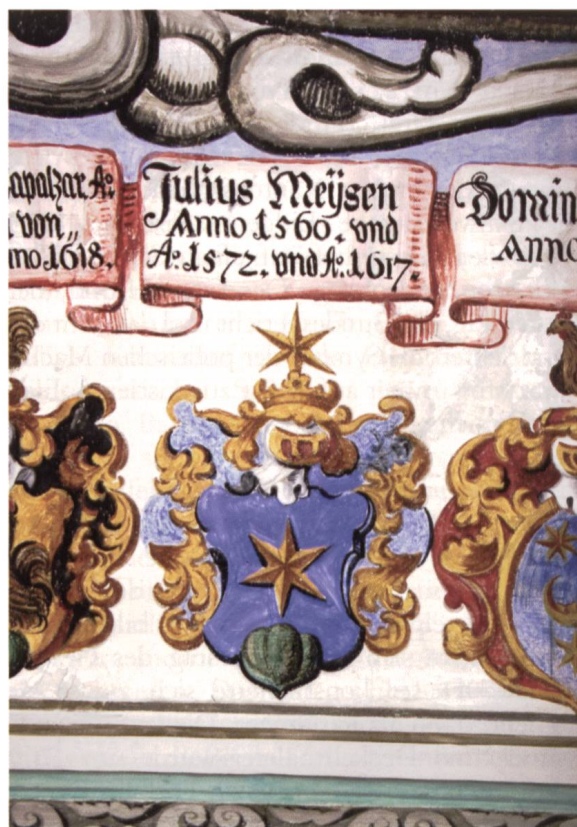 von
1618.
Julius Meÿsen
Anno 1560. vnd
Aº. 1572. vnd Aº. 1617.
Domin
Anno